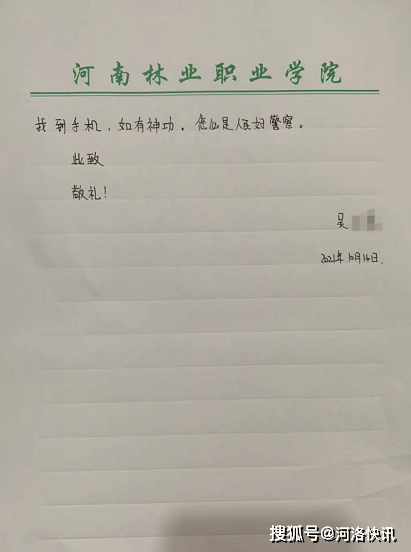 河南林业职业学院
找到手机，如有神功。您仙是人民好警察。
此致
敬礼！
吴
2021年10月14日.
搜狐号@河洛快讯